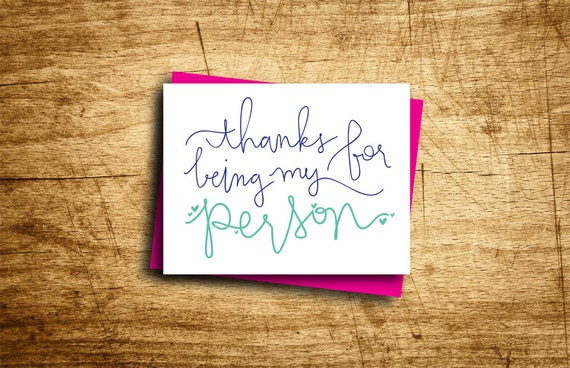 thanks for
being my
person